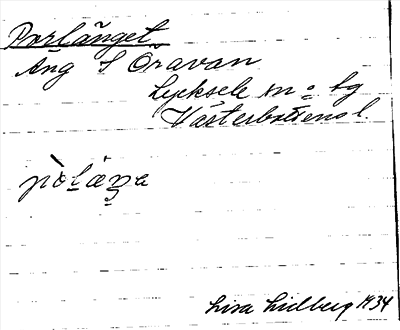 Porlänget
Äng S Öravan
Lycksele sn o tg
Västerbottens l.
pòläŋa
Lisa Lidberg 1934